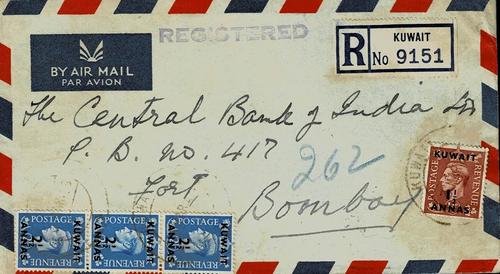 REGISTERED
KUWAIT
R No 9151
BY AIR MAIL
PAR AVION
The Central Bank of India Ltd
P. B. No. 417
Fort
262
Bombay
KUWAIT
POSTAGE REVENUE
ANNAS
POSTAGE
KUWAIT
2½ ANNAS
POSTAGE
KUWAIT
2½ ANNAS
POSTAGE REVENUE
KUWAIT
2½ ANNAS